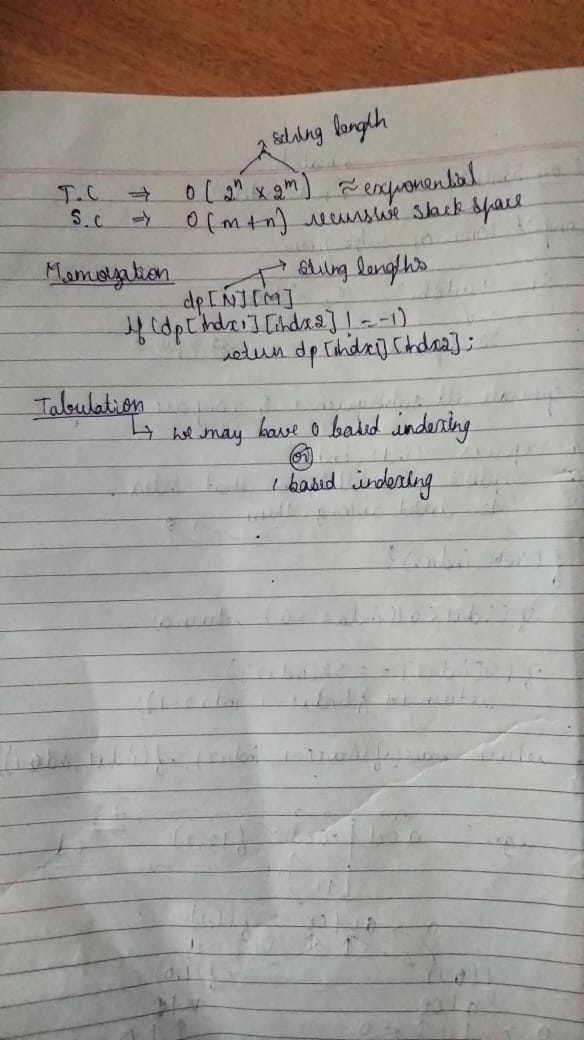 string length
T.C ⇒ O(2^n x 2^m) ≈ exponential
S.C ⇒ O(m+n) recursive stack space
Memoization
→ string lengths
dp[N][M]
if (dp[indx1][indx2] != -1)
return dp[indx1][indx2];
Tabulation
↳ we may have 0 based indexing
or
1 based indexing